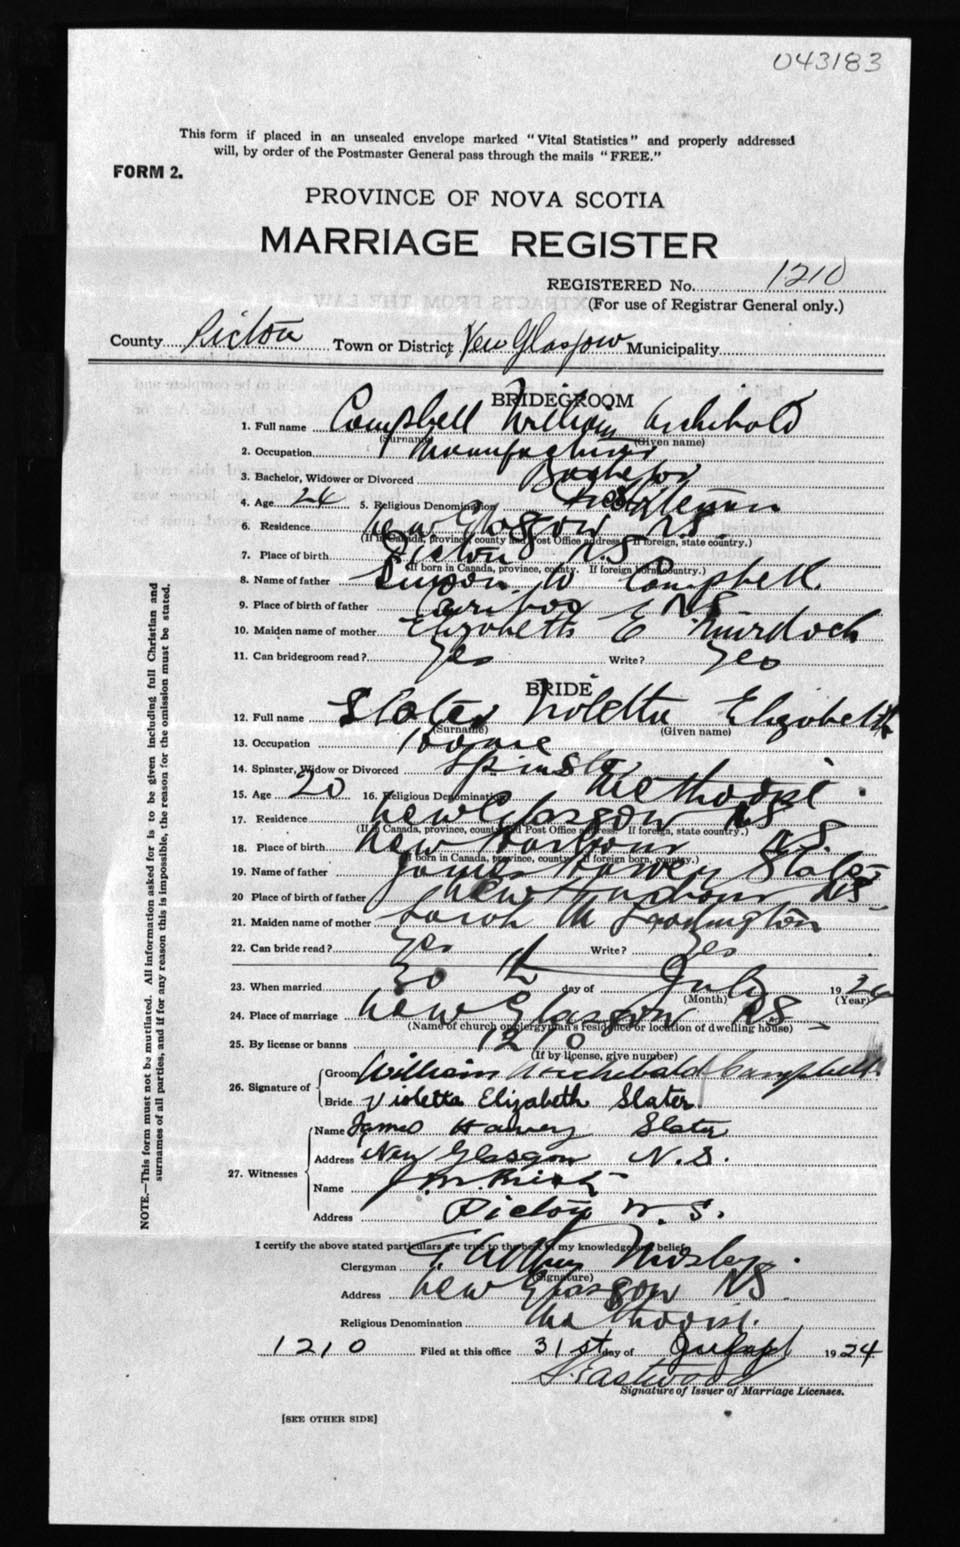 043183
This form if placed in an unsealed envelope marked "Vital Statistics" and properly addressed
will, by order of the Postmaster General pass through the mails "FREE."
FORM 2.
PROVINCE OF NOVA SCOTIA
MARRIAGE REGISTER
REGISTERED No. 1210
(For use of Registrar General only.)
County Pictou Town or District New Glasgow Municipality
BRIDEGROOM
1. Full name Campbell William Archibald
(Surname) (Given name)
2. Occupation Manufacturer
3. Bachelor, Widower or Divorced Bachelor
4. Age 26 5. Religious Denomination
6. Residence New Glasgow N.S.
(If in Canada, province, county and Post Office address. If foreign, state country.)
7. Place of birth Pictou N.S.
(If born in Canada, province, county. If foreign born, country.)
8. Name of father Simson W Campbell
9. Place of birth of father Cariboo N.S.
10. Maiden name of mother Elizabeth E Murdoch
11. Can bridegroom read? Yes Write? Yes
BRIDE
12. Full name Slater Violetta Elizabeth
(Surname) (Given name)
13. Occupation Home
14. Spinster, Widow or Divorced Spinster
15. Age 20 16. Religious Denomination Methodist
17. Residence New Glasgow NS
(If in Canada, province, county and Post Office address. If foreign, state country.)
18. Place of birth New Harbour N.S.
(If born in Canada, province, county. If foreign born, country.)
19. Name of father James Harvey Slater
20 Place of birth of father New Harbour NS
21. Maiden name of mother Sarah M
22. Can bride read? Yes Write? Yes
23. When married 30th day of July 1924
(Month) (Year)
24. Place of marriage New Glasgow NS
(Name of church or clergyman's residence or location of dwelling house)
25. By license or banns 1210
(If by license, give number)
26. Signature of Groom William Archibald Campbell
Bride Violetta Elizabeth Slater
27. Witnesses Name James Harvey Slater
Address New Glasgow N.S.
Name J. M.
Address Pictou N.S.
I certify the above stated particulars are true to the best of my knowledge and belief.
Clergyman Arthur Mosher
(Signature)
Address New Glasgow NS
Religious Denomination Methodist.
1210 Filed at this office 31st day of July 1924
Eastwood
Signature of Issuer of Marriage Licenses.
[SEE OTHER SIDE]
NOTE.—This form must not be mutilated. All information asked for is to be given including full Christian and
surnames of all parties, and if for any reason this is impossible, the reason for the omission must be stated.